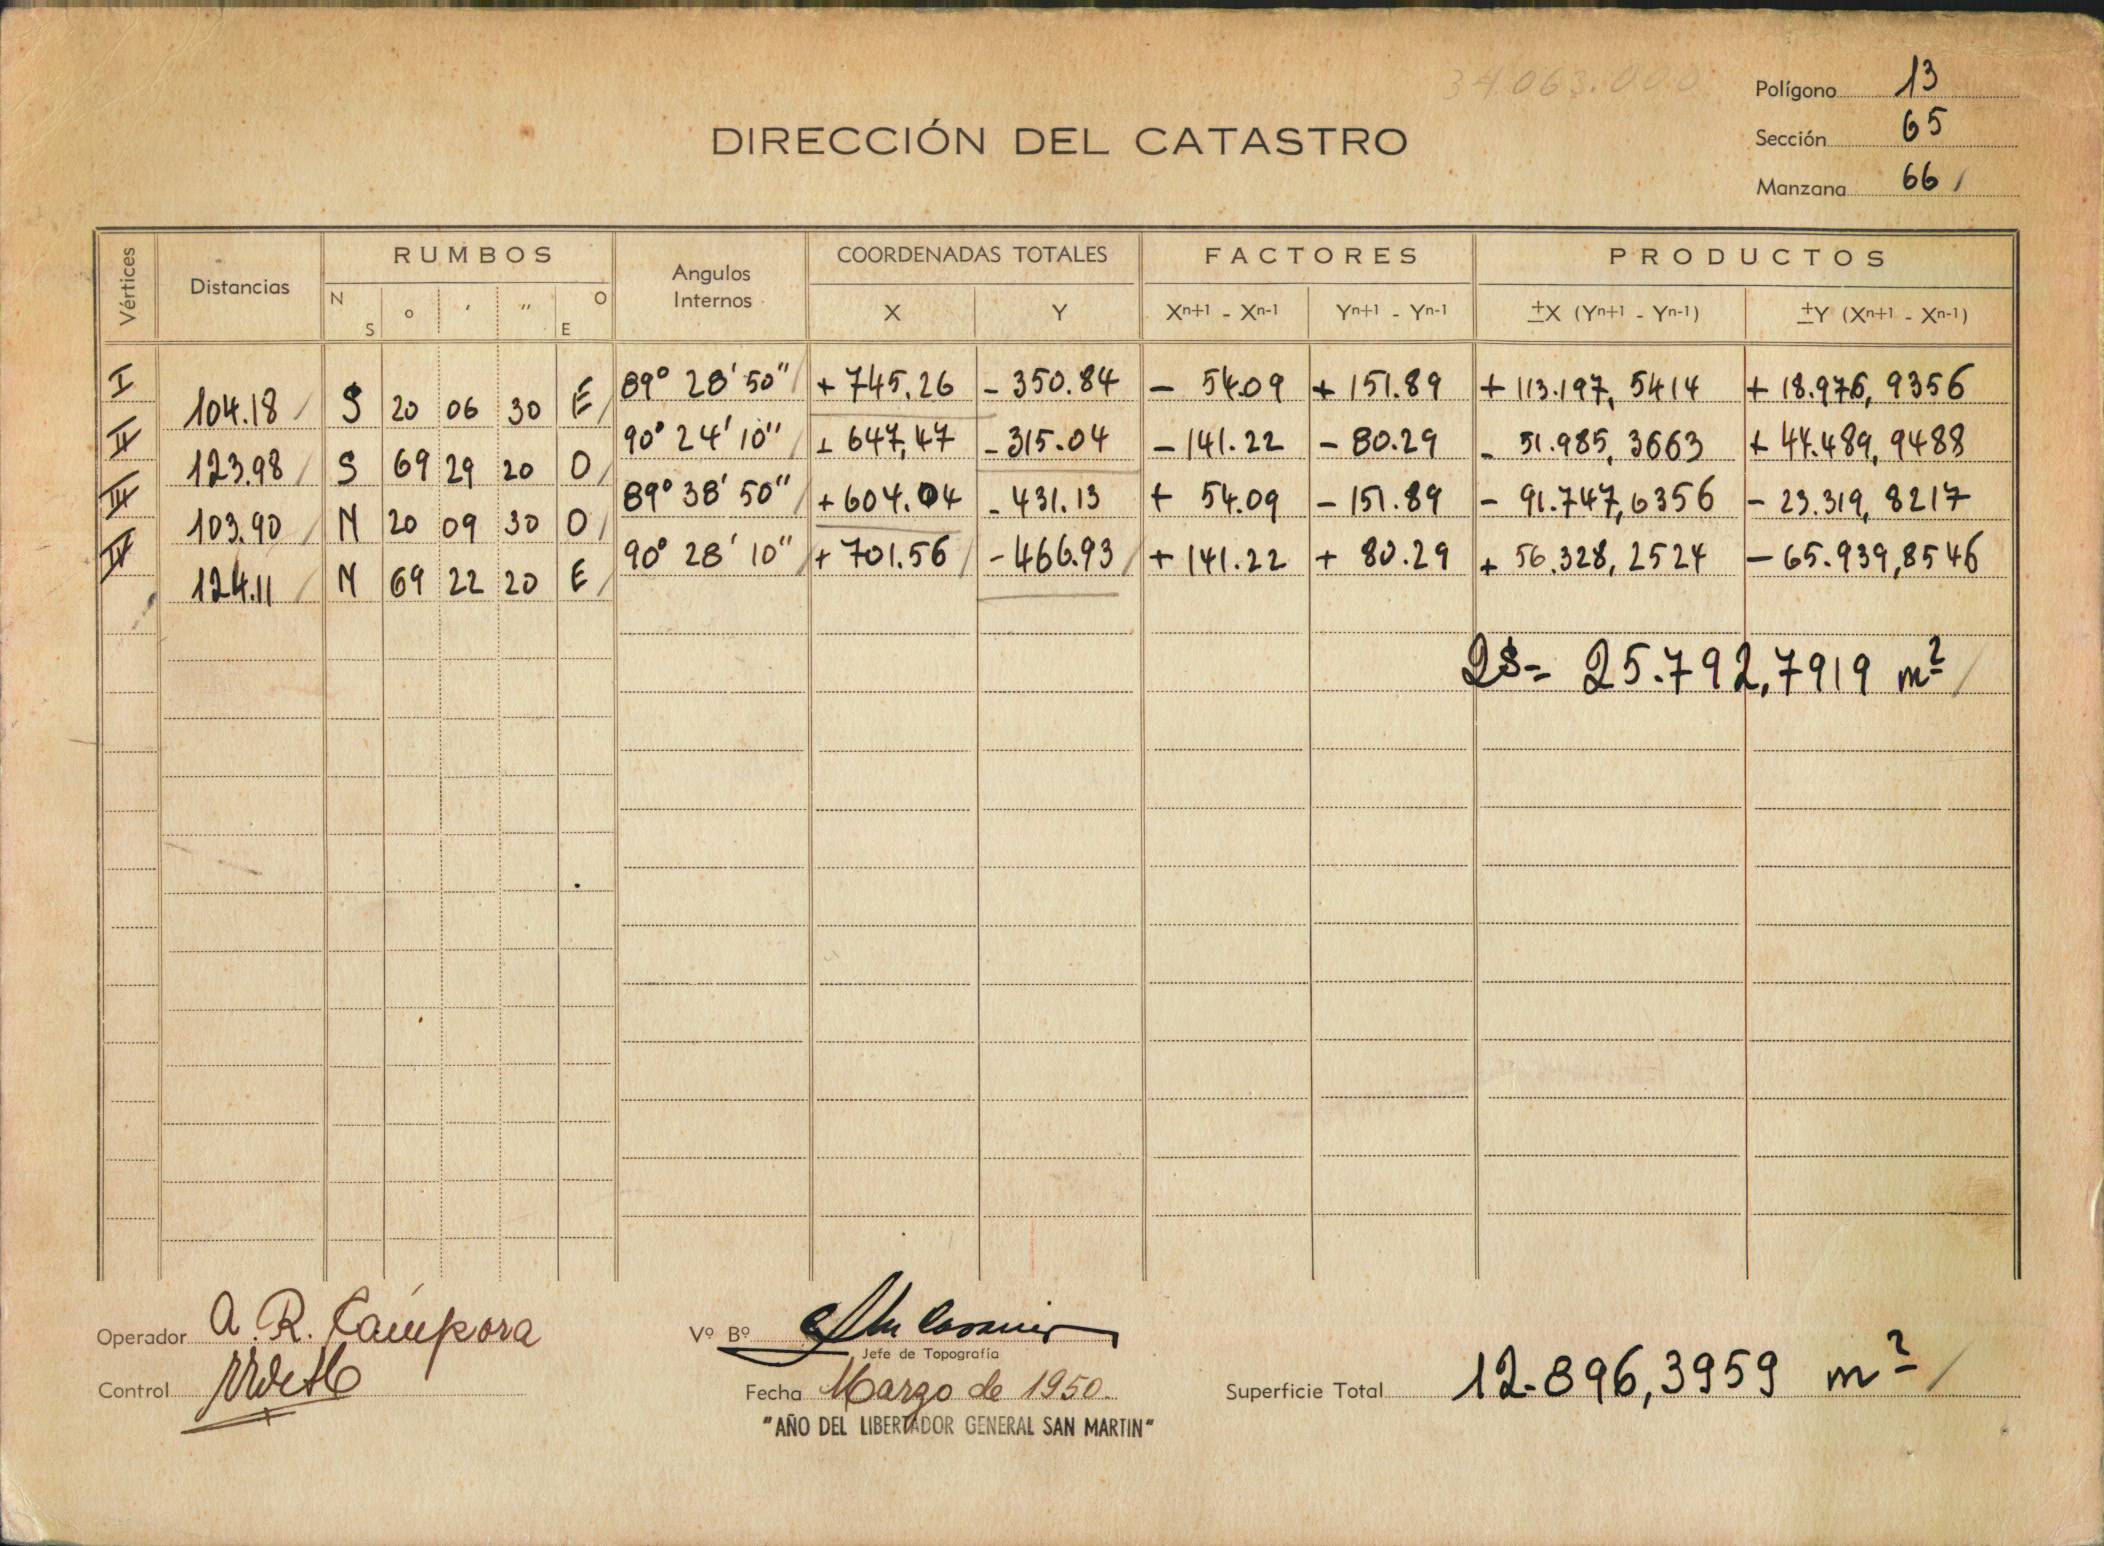 34.063.000
Polígono 13
DIRECCIÓN DEL CATASTRO
Sección 65
Manzana 66
Vértices Distancias RUMBOS Angulos Internos COORDENADAS TOTALES FACTORES PRODUCTOS
N S o ' " O E X Y Xn+1 - Xn-1 Yn+1 - Yn-1 ±X (Yn+1 - Yn-1) ±Y (Xn+1 - Xn-1)
I 89° 28' 50" + 745.26 - 350.84 - 54.09 + 151.89 + 113.197,5414 + 18.976,9356
104.18 S 20 06 30 E
II 90° 24' 10" + 647,47 - 315.04 - 141.22 - 80.29 - 51.985,3663 + 44.489,9488
123.98 S 69 29 20 O
III 89° 38' 50" + 604.04 - 431.13 + 54.09 - 151.89 - 91.747,6356 - 23.319,8217
103.90 N 20 09 30 O
IV 90° 28' 10" + 701.56 - 466.93 + 141.22 + 80.29 + 56.328,2524 - 65.939,8546
124.11 N 69 22 20 E
2S = 25.792,7919 m²
Operador A. R. Cámpora
Vº Bº
Jefe de Topografía
Control
Fecha Marzo de 1950.
Superficie Total 12.896,3959 m²
"AÑO DEL LIBERTADOR GENERAL SAN MARTIN"